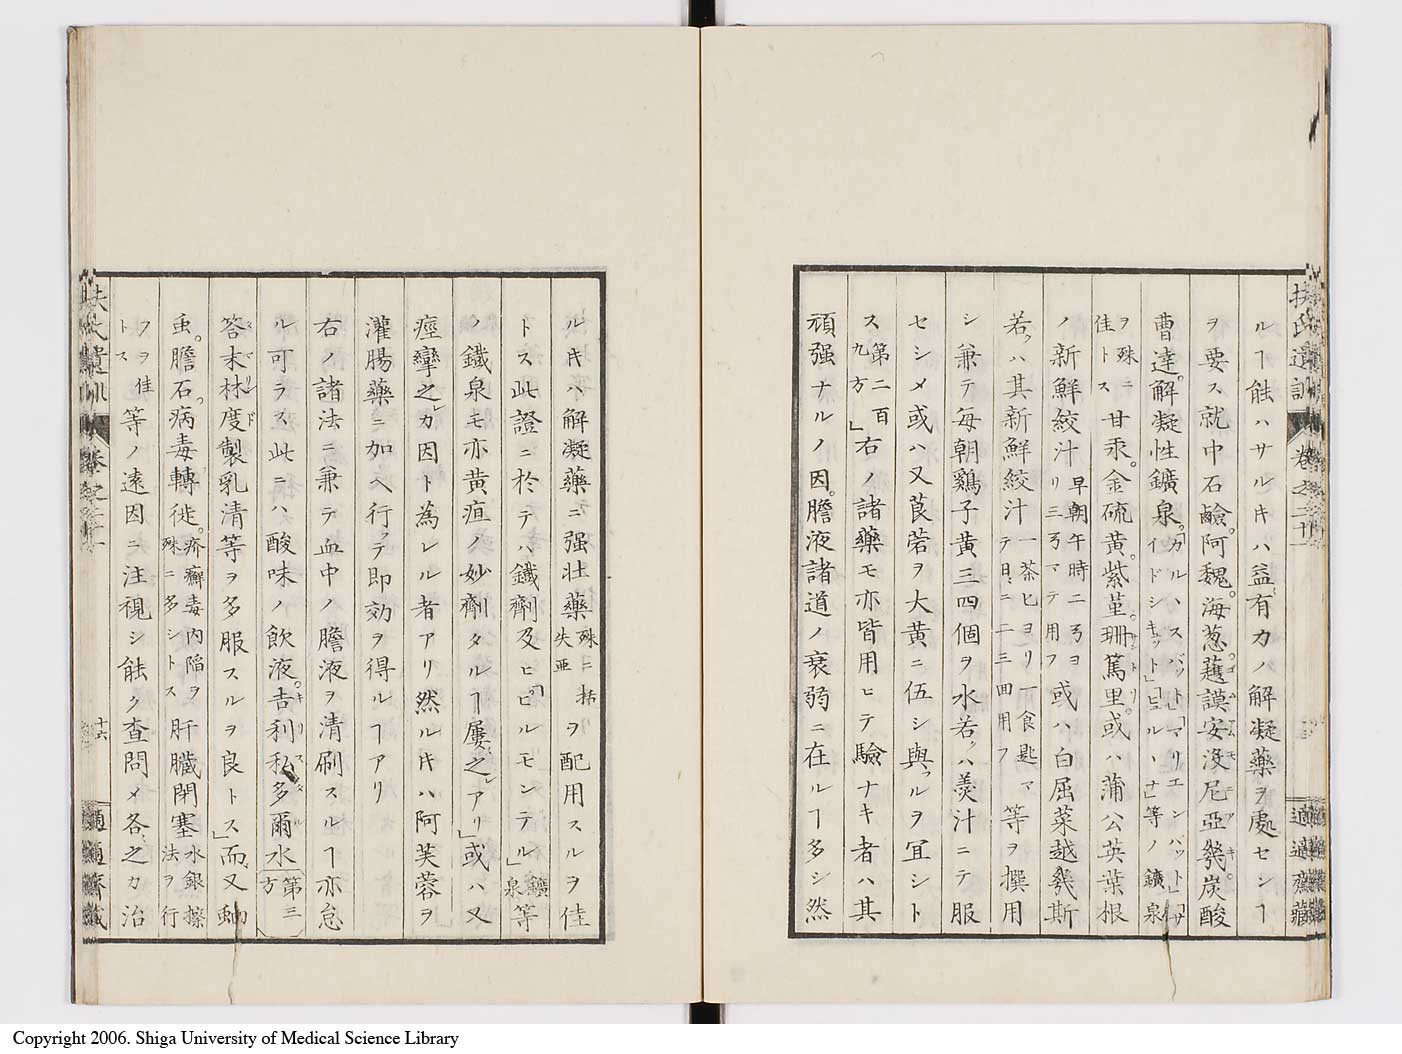 ルヿ能ハサルキハ益有力ノ解凝藥ヲ處セシヿ
ヲ要ス就中石鹼。阿魏。海葱。蘹謨安沒尼亞幾。炭酸
曹達。解凝性鑛泉。「カルハスバット」「マリエンバット」「サ
イドシキット」「ヒルハナ」等ノ鑛泉
ヲ殊ニ
佳トス
甘汞。金硫黄。紫菫。珊篤里。或ハ蒲公英葉根
ノ新鮮絞汁
早朝午時二弓ヨ
リ三弓マテ用フ
或ハ白屈菜越幾斯
若クハ其新鮮絞汁
一茶匕ヨリ一食匙マ
テ日ニ二三回用フ
等ヲ撰用
シ兼テ毎朝鷄子黄三四個ヲ水若クハ羮汁ニテ服
セシメ或ハ又莨菪ヲ大黄ニ伍シ與フルヲ冝シト
ス
第二百
九方
」右ノ諸藥モ亦皆用ヒテ驗ナキ者ハ其
頑强ナルノ因。膽液諸道ノ衰弱ニ在ルヿ多シ然
扶氏遺訓 卷之二十一
適適齋藏
ルキハ解凝藥ニ强壮藥
殊ニ括
失亜
ヲ配用スルヲ佳
トス此證ニ於テハ鐵劑及ヒ「ピルモンテル」
鑛
泉
等
ノ鐵泉モ亦黄疸ノ妙劑タルヿ屢之レアリ」或ハ又
痙攣之レカ因ト為レル者アリ然ルキハ阿芙蓉ヲ
灌腸藥ニ加ヘ行テ即効ヲ得ルヿアリ
右ノ諸法ニ兼テ血中ノ膽液ヲ清刷スルヿ亦怠
ル可ラス此ニハ酸味ノ飲液。吉利私多爾水
第三
方
答末林度製乳清等ヲ多服スルヲ良トス」而又蚘
虫。膽石。病毒轉徙。
疥癬毒内陥ヲ
殊ニ多シトス
肝臓閉塞
水銀擦
法ヲ行
フヲ佳
トス
等ノ遠因ニ注視シ能ク査問メ各之カ治
扶氏遺訓 卷之二十一
十六
適適齋藏
Copyright 2006. Shiga University of Medical Science Library